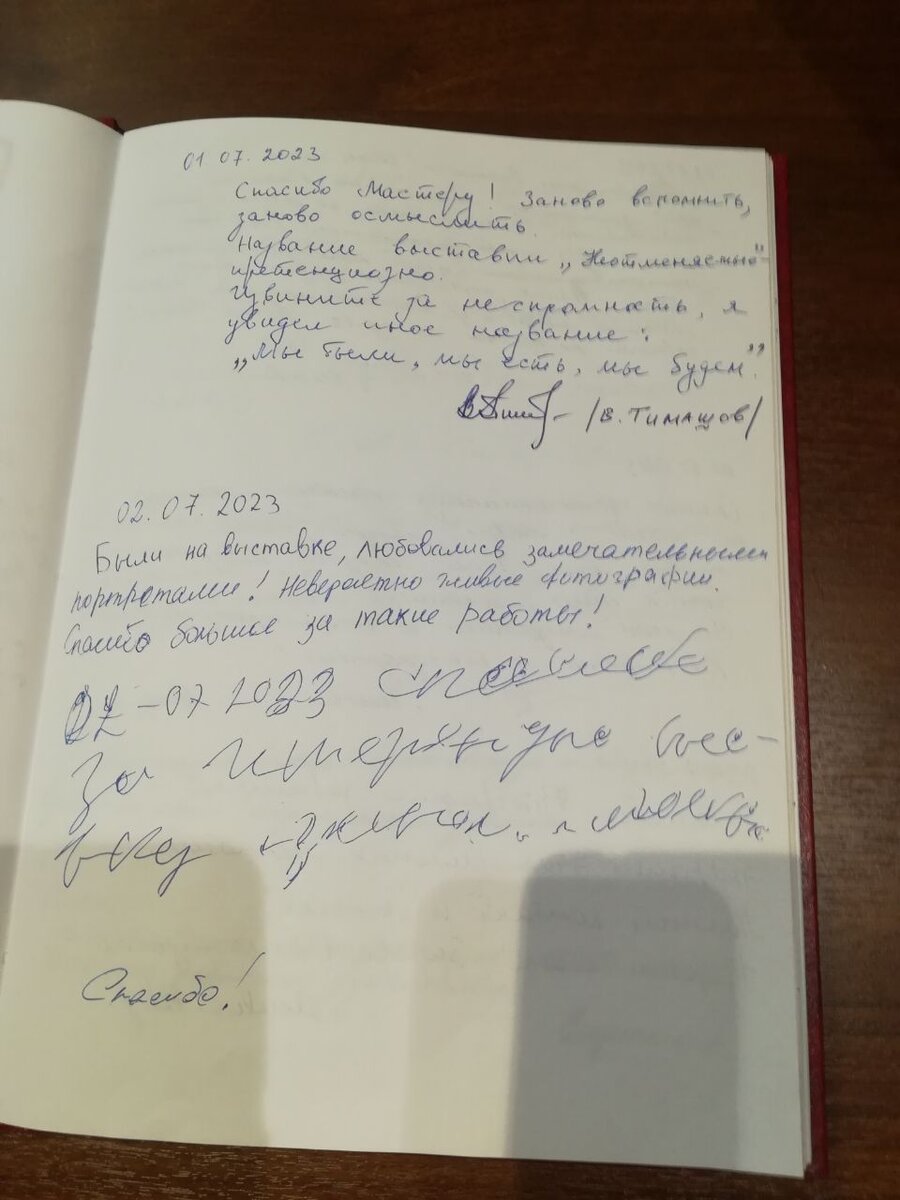 01 07. 2023
Спасибо Мастеру! Заново вспомнить,
заново осмыслить.
Название выставки „Неотменяемые"
претенциозно.
Извините за нескромность, я
увидел иное название:
„Мы были, мы есть, мы будем".
/В. Тимашов/
02.07.2023
Были на выставке, любовались замечательными
портретами! Невероятно живые фотографии.
Спасибо большое за такие работы!
-07 2023 Спасибо
за
Спасибо!